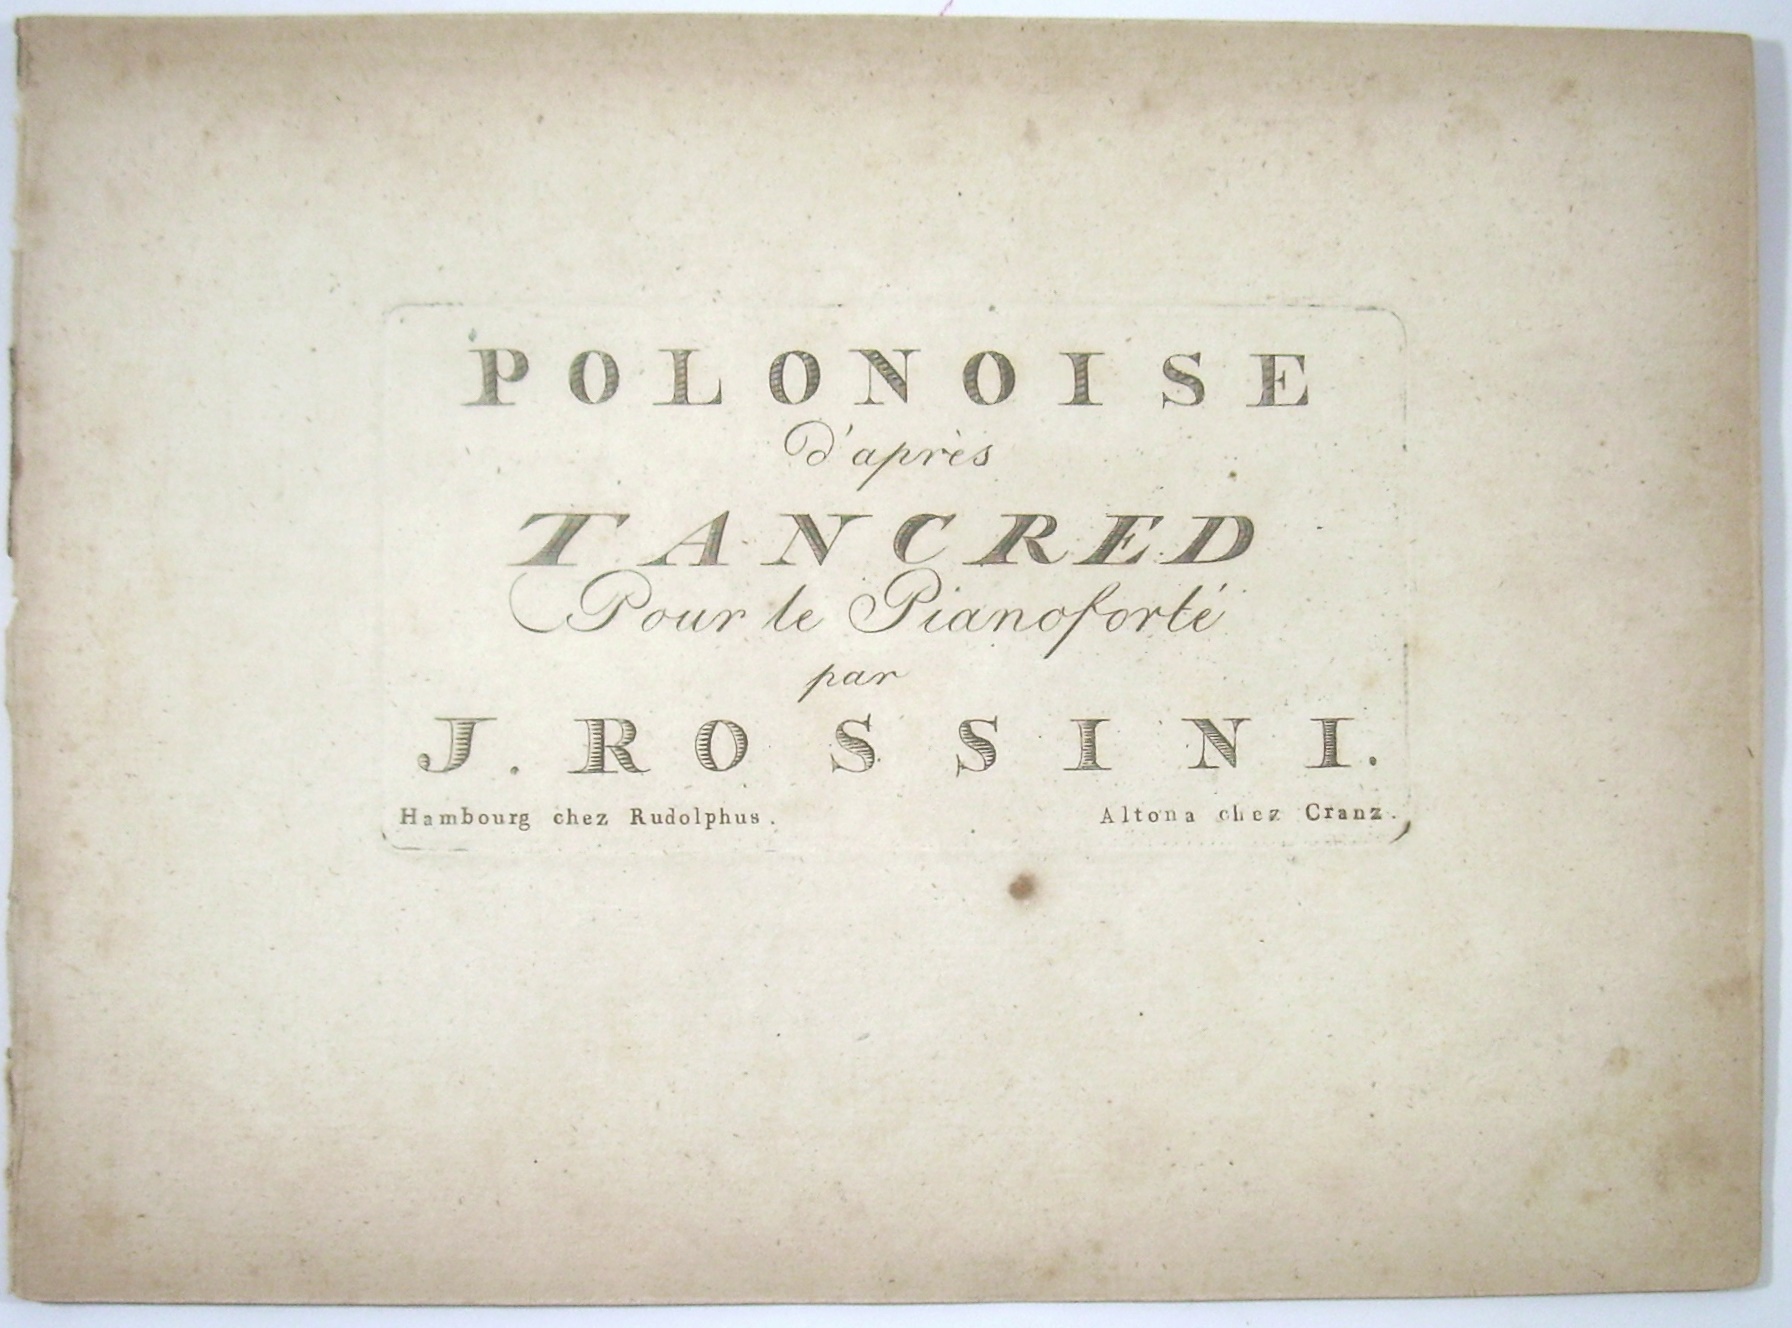 POLONOISE
d'après
TANCRED
Pour le Pianoforté
par
J. ROSSINI.
Hambourg chez Rudolphus. Altona chez Cranz.